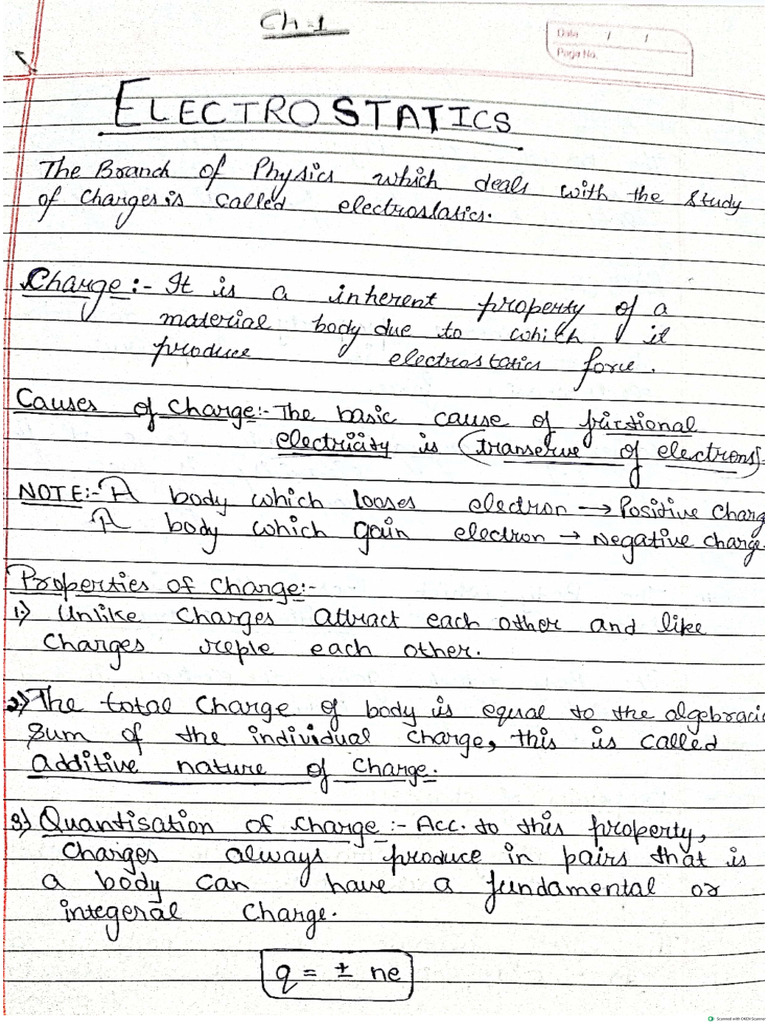 Ch-1
Date / /
Page No.
ELECTROSTATICS
The Branch of Physics which deals with the study
of Charges is called electrostatics.
Charge:- It is a inherent property of a
material body due to which it
produce electrostatics force.
Causes of Charge:- The basic cause of frictional
electricity is (transerve of electrons).
NOTE:- A body which looses electron → Positive Charg
A body which gain electron → Negative charge.
Properties of Charge:-
1) Unlike Charges attract each other and like
Charges reple each other.
2) The total Charge of body is equal to the algebraic
Sum of the individual Charge, this is called
additive nature of Charge.
3) Quantisation of Charge:- Acc. to this property,
Charges always produce in pairs that is
a body can have a fundamental or
integeral Charge.
q = ± ne
Scanned with OKEN Scanner